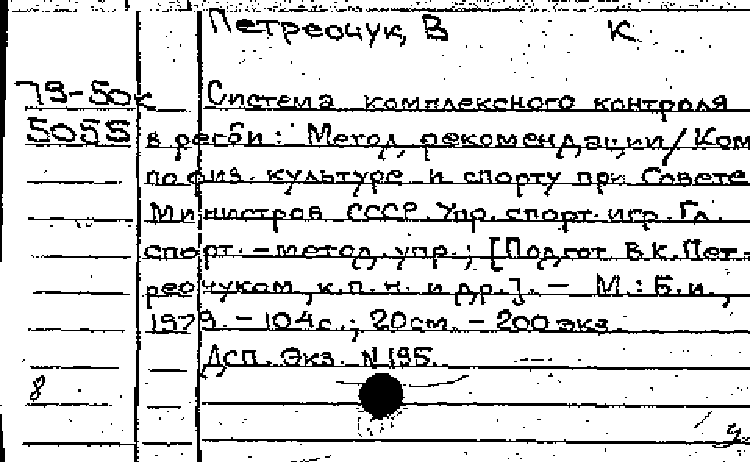 Петреочук, В К
79-50к Система комплексного контроля
5055 в регби: Метод. рекомендации/Ком.
по физ. культуре и спорту при Совете
Министров СССР. Упр. спорт. игр. Гл.
спорт.-метод. упр.; [Подгот. В.К. Пет-
реочуком, к.п.н. и др.]. - М.: Б.и.,
1979. - 104с.; 20см. - 200 экз.
Дсп. Экз. N 195.
8